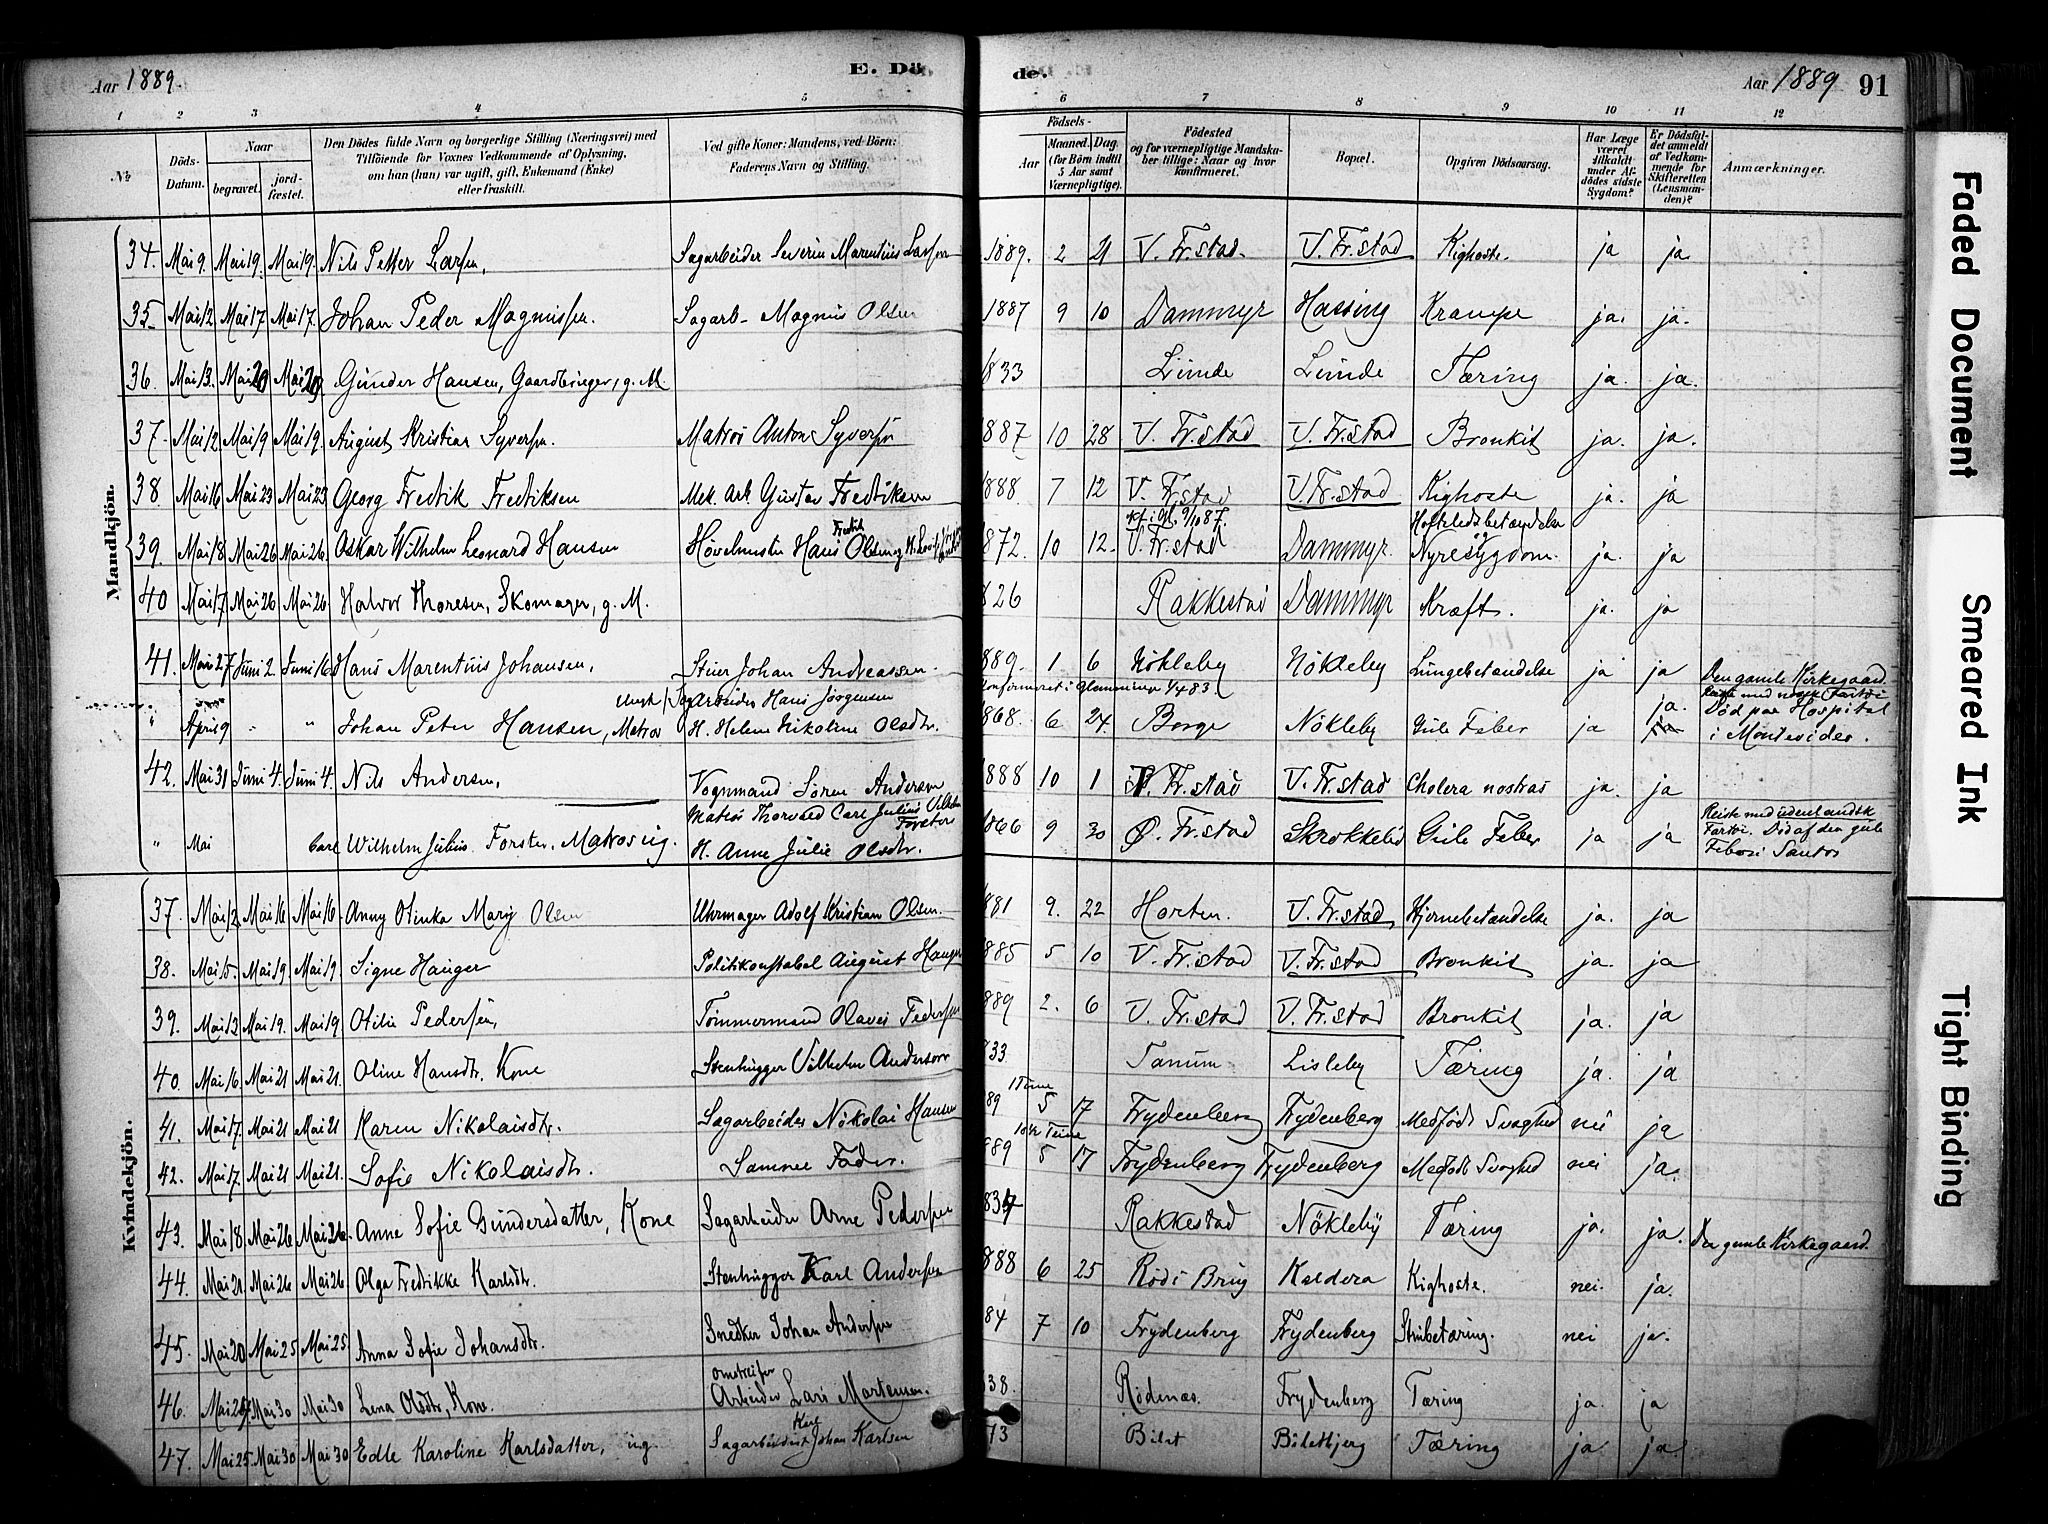 Aar 1889. E. Dö de. Aar 1889 91
1 2 3 4 5 6 7 8 9 10 11 12
№ Döds-Datum. Naar begravet. jordfæstet. Den Dödes fulde Navn og borgerlige Stilling (Næringsvei) med Tilföiende for Voxnes Vedkommende af Oplysning, om han (hun) var ugift, gift, Enkemand (Enke) eller fraskilt. Ved gifte Koner: Mandens, ved Börn: Faderens Navn og Stilling. Födsels- Aar Maaned. Dag. (for Börn indtil 5 Aar samt Værnepligtige). Födested og for værnepligtige Mandskaber tillige: Naar og hvor konfirmeret. Bopæl. Opgiven Dödsaarsag. Har Læge været tilkaldt under Afdödes sidste Sygdom? Er Dödsfaldet anmeldt af Vedkommende for Skifteretten (Lensmanden)? Anmærkninger.
Mandkjön.
34. Mai 9. Mai 19. Mai 19. Nils Petter Larsen, Sagarbeider Severin Marentius Larsen 1889. 2 21 V. Fr.stad. V. Fr.stad Kighoste. ja ja.
35. Mai 12 Mai 17 Mai 17. Johan Peder Magnussen. Sagarb. Magnus Olsen 1887 9 10 Dammyr Hassing Krampe ja. ja.
36. Mai 13. Mai 20 Mai 20 Gunder Hansen, Gaardbruger, g. M. 1833 Lunde Lunde Tæring ja. ja.
37. Mai 12 Mai 19 Mai 19. August Kristian Syversen. Matros Anton Syversen 887 10 28 V. Fr.stad V. Fr.stad Bronkit ja. ja.
38. Mai 16 Mai 23 Mai 23 Georg Fredrik Fredriksen Mek. Arb. Gustav Fredriksen 888 7 12 V. Fr.stad V. Fr.stad Kighoste ja. ja
39. Mai 18 Mai 26 Mai 26. Oskar Wilhelm Leonard Hansen Høvelmester Hans Fredrik Olsen og H. 872. 10 12. V. Fr.stad Dammyr. Hofteledsbetændelse Nyresygdom. ja. ja
40 Mai 17 Mai 26 Mai 26 Halvor Thoresen, Skomager, g. M. 826 Rakkestad Dammyr Kræft. ja. ja
41. Mai 27 Juni 2. Juni 16. Hans Marentius Johansen, Stuer Johan Andreassen 889. 1 6 Nökleby Nökleby Lungebetændelse ja ja Den gamle Kirkegaard.
" April 9 " Johan Peter Hansen, Matros Sagarbeider Hans Jørgensen H. Helene Nikoline Olsdtr. Konfirmeret i Glemminge 1/4 83 868. 6 24. Borge Nökleby Gule Feber ja ja. Reiste med norsk Fartöi Död paa Hospital i Montevideo.
42. Mai 31 Juni 4. Juni 4. Nils Andersen, Vognmand Sören Andersen 1888 10 1 V. Fr.stad V. Fr.stad Cholera nostras ja. ja
" Mai Carl Wilhelm Julius Forster, Matros ug. Matros Thorvald Carl Julius Vilhelm Forster H. Anne Julie Olsdtr. 1866 9 30 Ø. Fr.stad Skrokkelid Gule Feber ja ja Reiste med udenlandsk Fartöi. Död af den gule Feber i Santos
Kvindekjön.
37. Mai 12 Mai 16 Mai 16. Anny Otinka Mary Olsen Uhrmager Adolf Kristian Olsen. 881 9. 22 Horten. V. Fr.stad, Hjernebetændelse ja. ja
38. Mai 15. Mai 19. Mai 19. Signe Hauger Politikonstabel August Hauger 885 5 10 V. Fr.stad V. Fr.stad Bronkit ja. ja
39. Mai 13 Mai 19. Mai 19 Otilie Pedersen, Tømmermand Olaves Pedersen 889 2. 6 V. Fr.stad V. Fr.stad Bronkit ja. ja
40. Mai 16. Mai 21 Mai 21. Oline Hansdtr. Kone Stenhugger Vilhelm Anderson 833 Tanum Lisleby Tæring ja. ja
41. Mai 17. Mai 21 Mai 21 Karen Nikolaisdtr. Sagarbeider Nikolai Hansen 89 1 Time 5 17 Frydenberg Frydenberg Medfödt Svaghed nei ja
42. Mai 17. Mai 21 Mai 21. Sofie Nikolaisdtr. Samme Fader. 889 Time 5 17 Frydenberg Frydenberg Medfödt Svaghed nei ja.
43. Mai 18. Mai 26 Mai 26. Anne Sofie Gundersdatter, Kone Sagarbeider Arne Pedersen 834 Rakkestad Nökleby Tæring ja. ja. Den gamle Kirkegaard.
44. Mai 21. Mai 26 Mai 26 Olga Fredrikke Karlsdtr. Stenhugger Karl Andersen 888 6 25 Röds Brug Kaldera Kighoste. nei. ja.
45. Mai 20 Mai 25 Mai 25. Anna Sofie Johansdtr. Snedker Johan Andersen 84 7 10 Frydenberg Frydenberg Strubetæring. nei ja.
46. Mai 24 Mai 30 Mai 30 Lena Olsdtr, Kone. omstreifer Arbeider Lars Martensen. 38. Rödenæs. Frydenberg Tæring ja. ja
47. Mai 25. Mai 30 Mai 30 Edle Karoline Karlsdatter, ug. Sagarbeider Johan Karl Karlsen 73 Bilet Biletbjerg Tæring ja ja.
Faded Document
Smeared Ink
Tight Binding